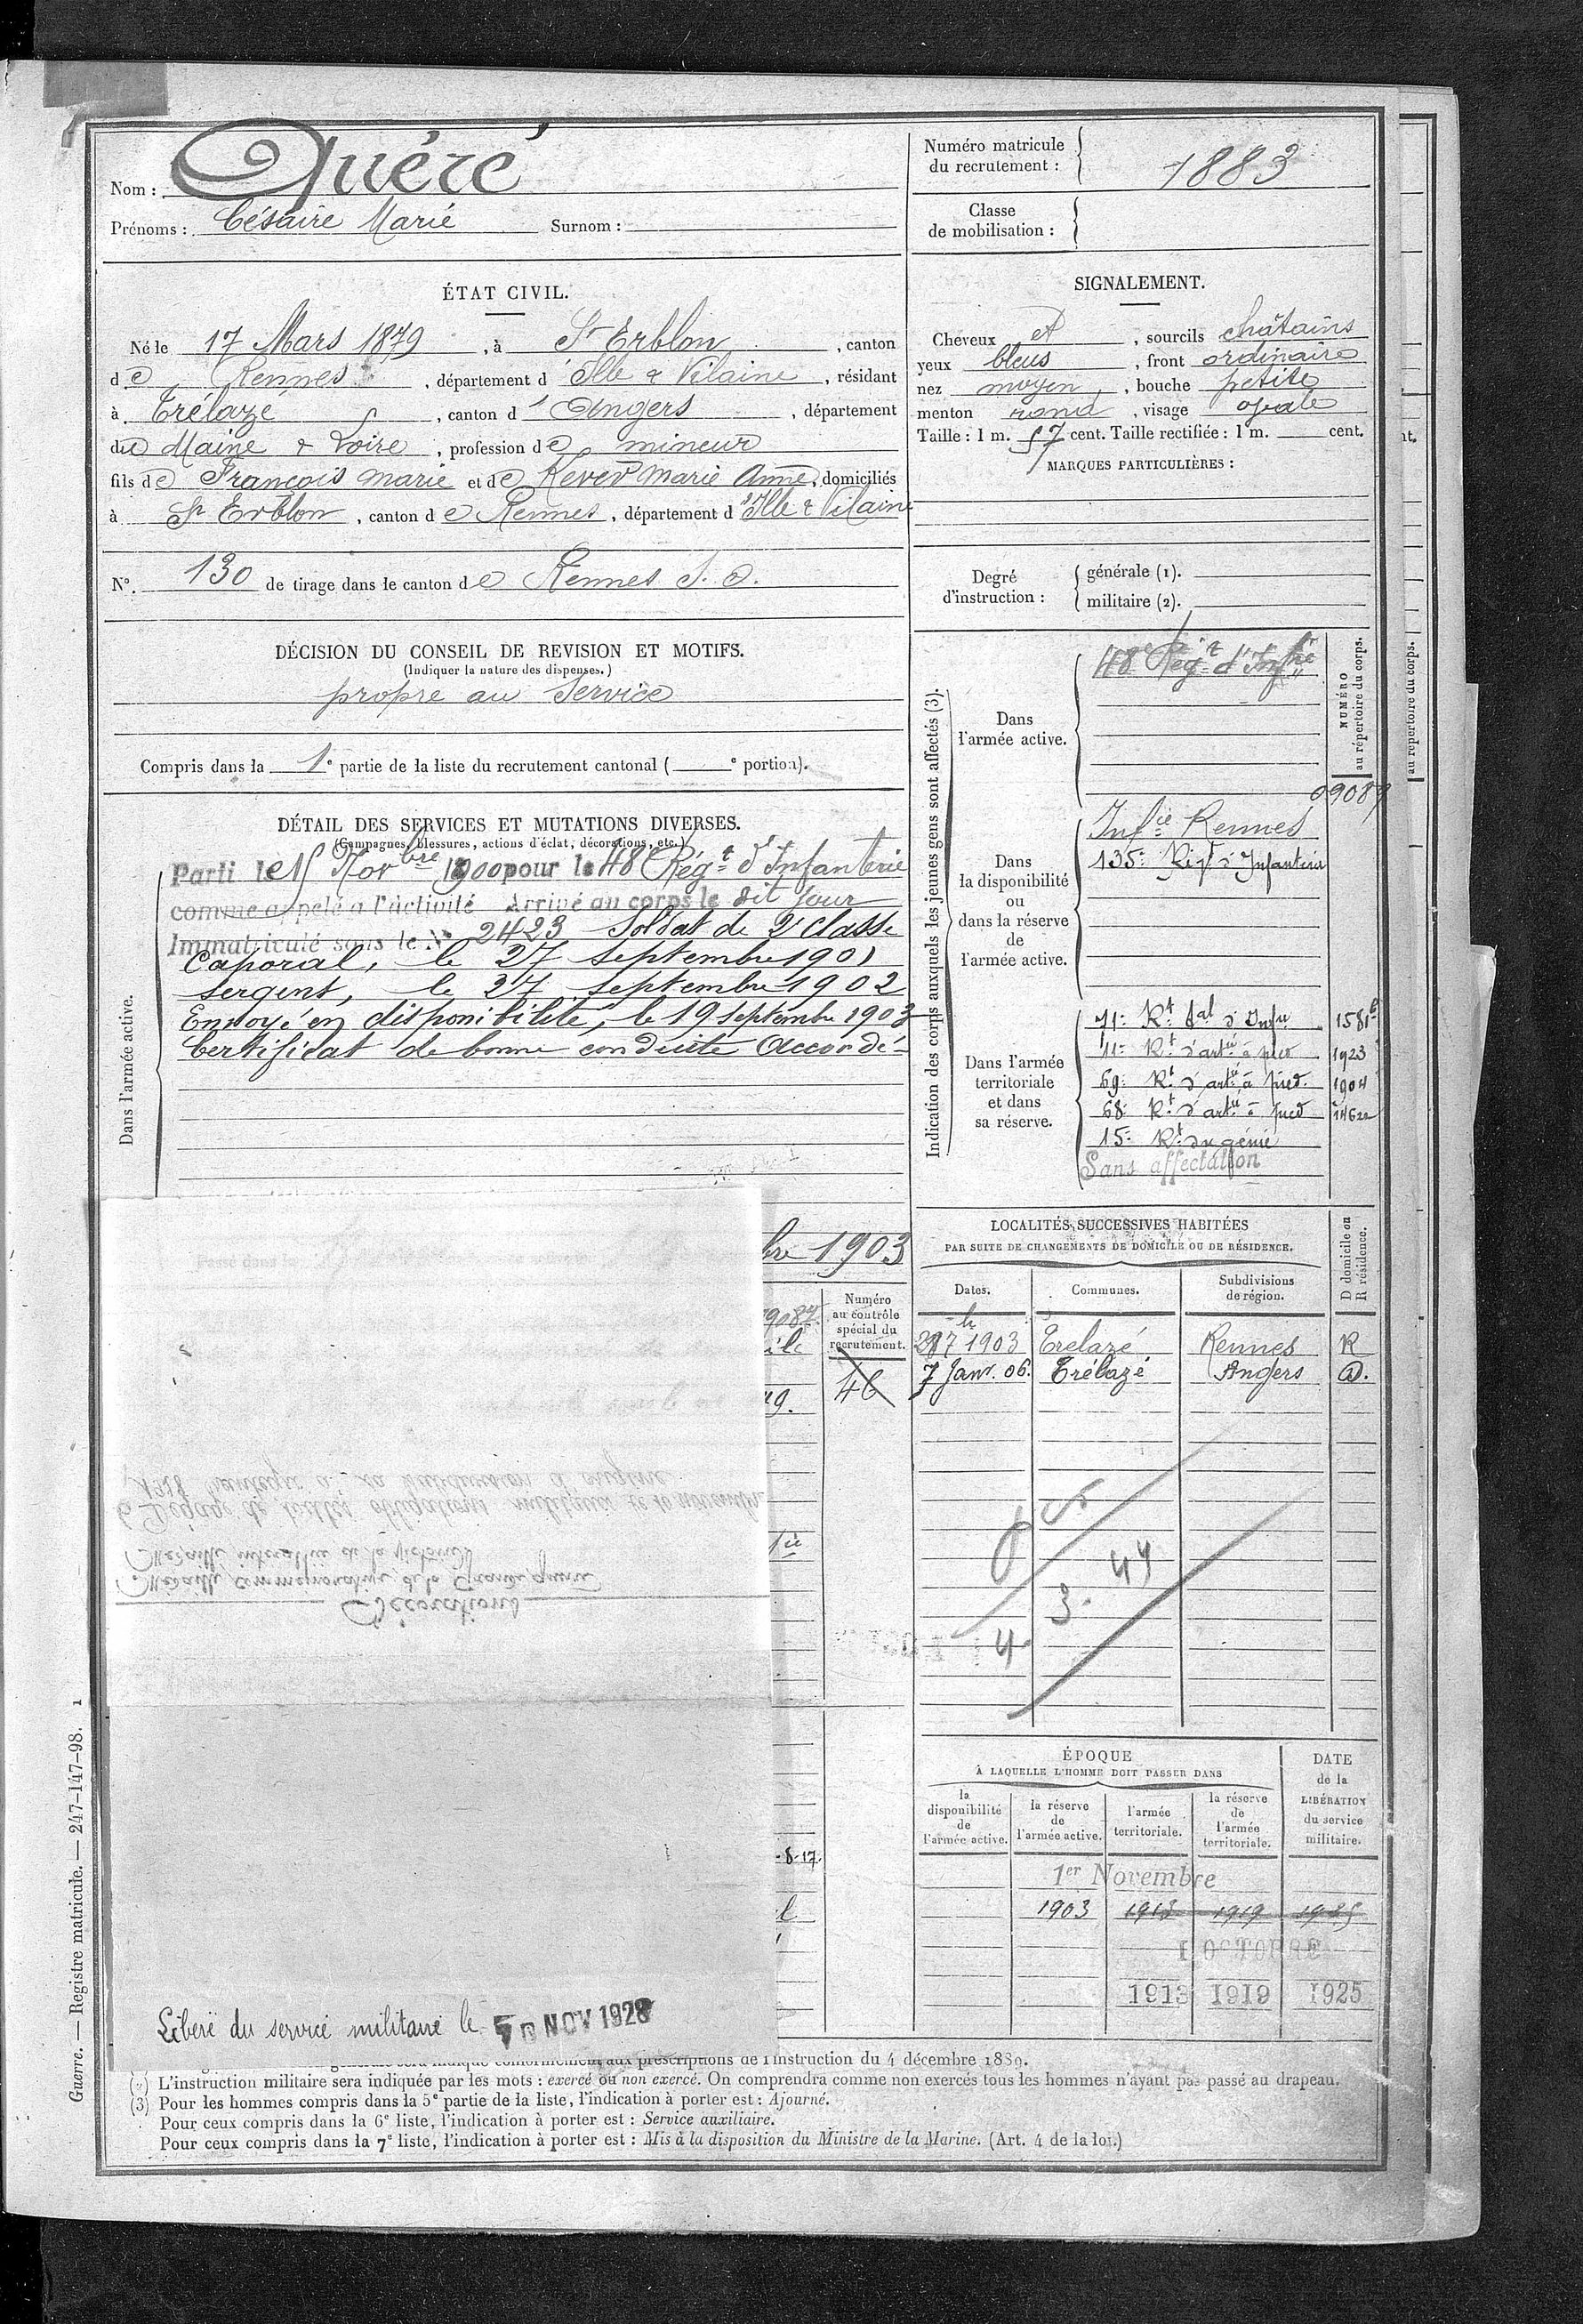 Nom : Quéré
Prénoms : Césaire Marie Surnom :
Numéro matricule
du recrutement : 1883
Classe
de mobilisation :
ÉTAT CIVIL.
Né le 17 Mars 1879, à St Erblon, canton
de Rennes, département d'Ille & Vilaine, résidant
à Trélazé, canton d'Angers, département
du Maine & Loire, profession de mineur
fils de François Marie et de Kever Marie Anne, domiciliés
à St Erblon, canton de Rennes, département d'Ille & Vilaine
N° 130 de tirage dans le canton de Rennes S. O.
DÉCISION DU CONSEIL DE REVISION ET MOTIFS.
(Indiquer la nature des dispenses.)
propre au Service
Compris dans la 1e partie de la liste du recrutement cantonal ( e portion).
DÉTAIL DES SERVICES ET MUTATIONS DIVERSES.
(Campagnes, blessures, actions d'éclat, décorations, etc.)
Dans l'armée active.
Parti le 15 Novbre 1900 pour le 48e Régt d'Infanterie
comme appelé à l'activité Arrivé au corps le dit jour
Immatriculé sous le N° 2423 Soldat de 2e classe
Caporal, le 27 septembre 1901
Sergent, le 27 septembre 1902
Envoyé en disponibilité, le 19 septembre 1903
Certificat de bonne conduite accordé
bre 1903
Numéro
au contrôle
spécial du
recrutement.
46
8-17.
Décorations
Médaille commémorative de la Grande guerre
Médaille interalliée de la victoire
Dégagé de toutes obligations militaires le 10 novembre
1928
Libéré du service militaire le 10 NOV 1928
SIGNALEMENT.
Cheveux et, sourcils châtains
yeux bleus, front ordinaire
nez moyen, bouche petite
menton rond, visage ovale
Taille : 1 m. 57 cent. Taille rectifiée : 1 m. cent.
MARQUES PARTICULIÈRES :
Degré
d'instruction :
générale (1).
militaire (2).
Indication des corps auxquels les jeunes gens sont affectés (3).
NUMÉRO
au répertoire du corps.
Dans
l'armée active.
48e Régt d'Infrie
09087
Dans
la disponibilité
ou
dans la réserve
de
l'armée active.
Infie Rennes
135e Régt d'Infanterie
Dans l'armée
territoriale
et dans
sa réserve.
71e Rt tal d'Infie 1581
11e Rt d'artie à pied 1923
69e Rt d'artie à pied. 1904
68e Rt d'artie à pied
15e Rt du génie
Sans affectation
LOCALITÉS SUCCESSIVES HABITÉES
PAR SUITE DE CHANGEMENTS DE DOMICILE OU DE RÉSIDENCE.
D domicile ou
R résidence.
Dates. Communes. Subdivisions
de région.
1903 Trelazé Rennes R
7 Janv. 06. Trélazé Angers D.
44
3.
4.
ÉPOQUE
À LAQUELLE L'HOMME DOIT PASSER DANS
la
disponibilité
de
l'armée active.
la réserve
de
l'armée active.
l'armée
territoriale.
la réserve
de
l'armée
territoriale.
DATE
de la
LIBÉRATION
du service
militaire.
1er Novembre
1903 1913 1919 1925
1 OCTOBRE
1913 1919 1925
aux prescriptions de l'Instruction du 4 décembre 1889.
(2) L'instruction militaire sera indiquée par les mots : exercé ou non exercé. On comprendra comme non exercés tous les hommes n'ayant pas passé au drapeau.
(3) Pour les hommes compris dans la 5e partie de la liste, l'indication à porter est : Ajourné.
Pour ceux compris dans la 6e liste, l'indication à porter est : Service auxiliaire.
Pour ceux compris dans la 7e liste, l'indication à porter est : Mis à la disposition du Ministre de la Marine. (Art. 4 de la loi.)
Guerre. — Registre matricule. — 247-147-98. 1
au répertoire du corps.